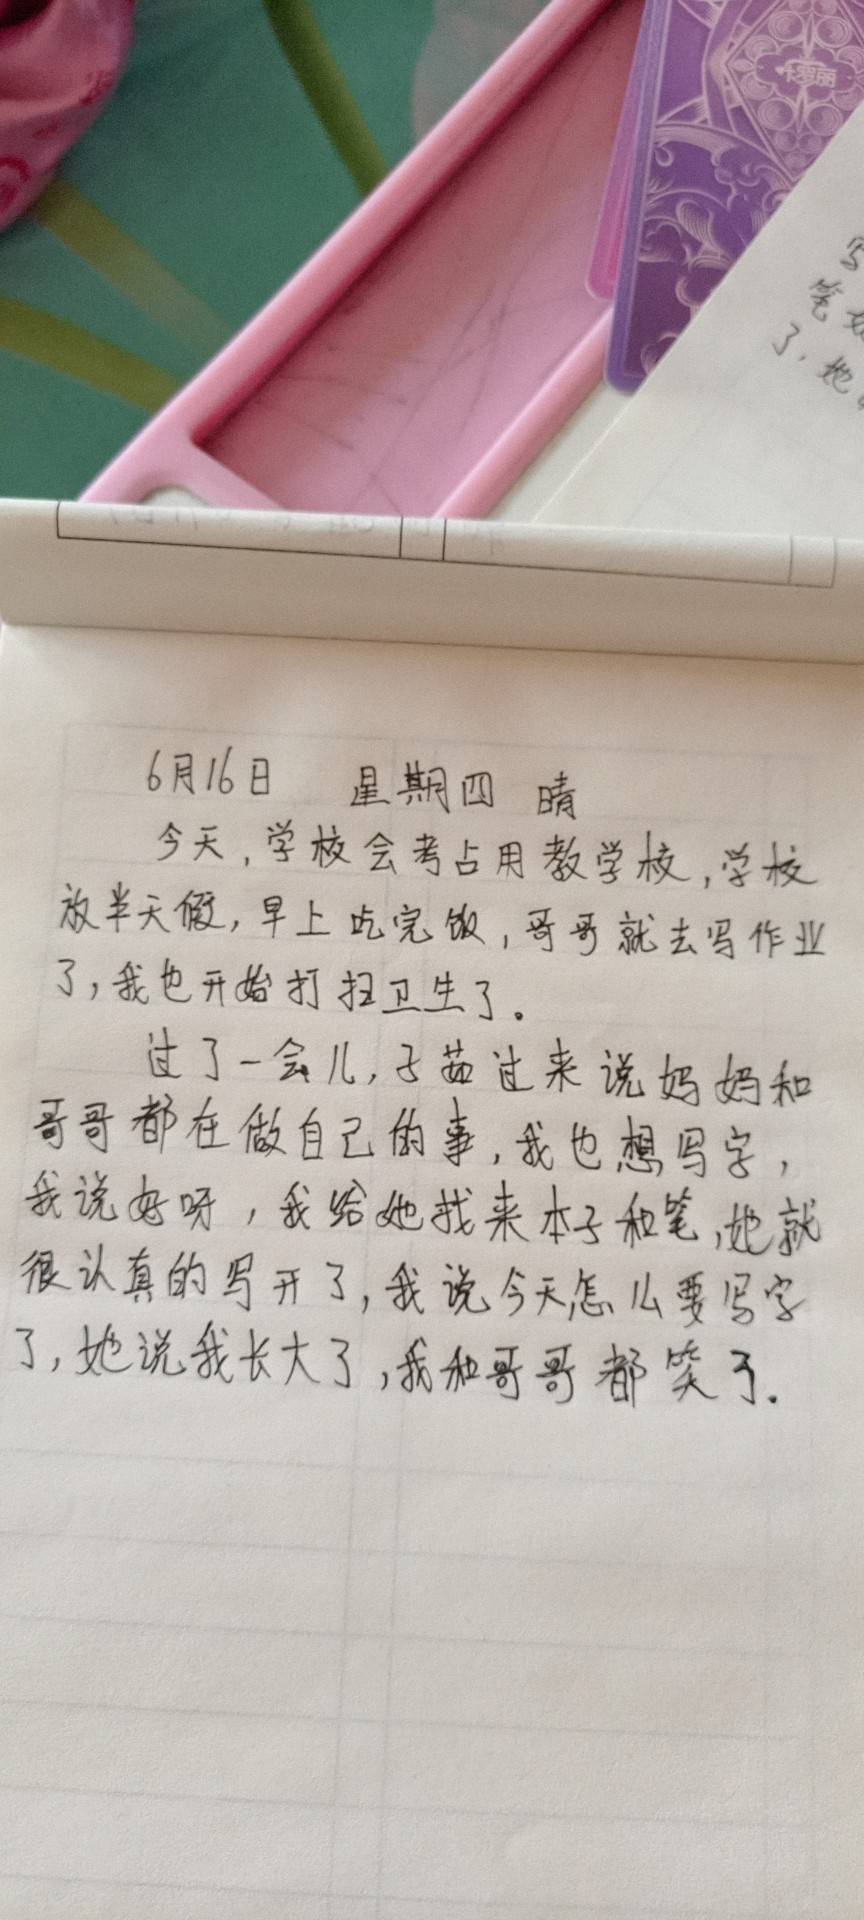 叶罗丽
写
笔
了，她
6月16日 星期四 晴
今天，学校会考占用教学校，学校
放半天假，早上吃完饭，哥哥就去写作业
了，我也开始打扫卫生了。
过了一会儿，子茹过来说妈妈和
哥哥都在做自己的事，我也想写字，
我说好呀，我给她找来本子和笔，她就
很认真的写开了，我说今天怎么要写字
了，她说我长大了，我和哥哥都笑了.